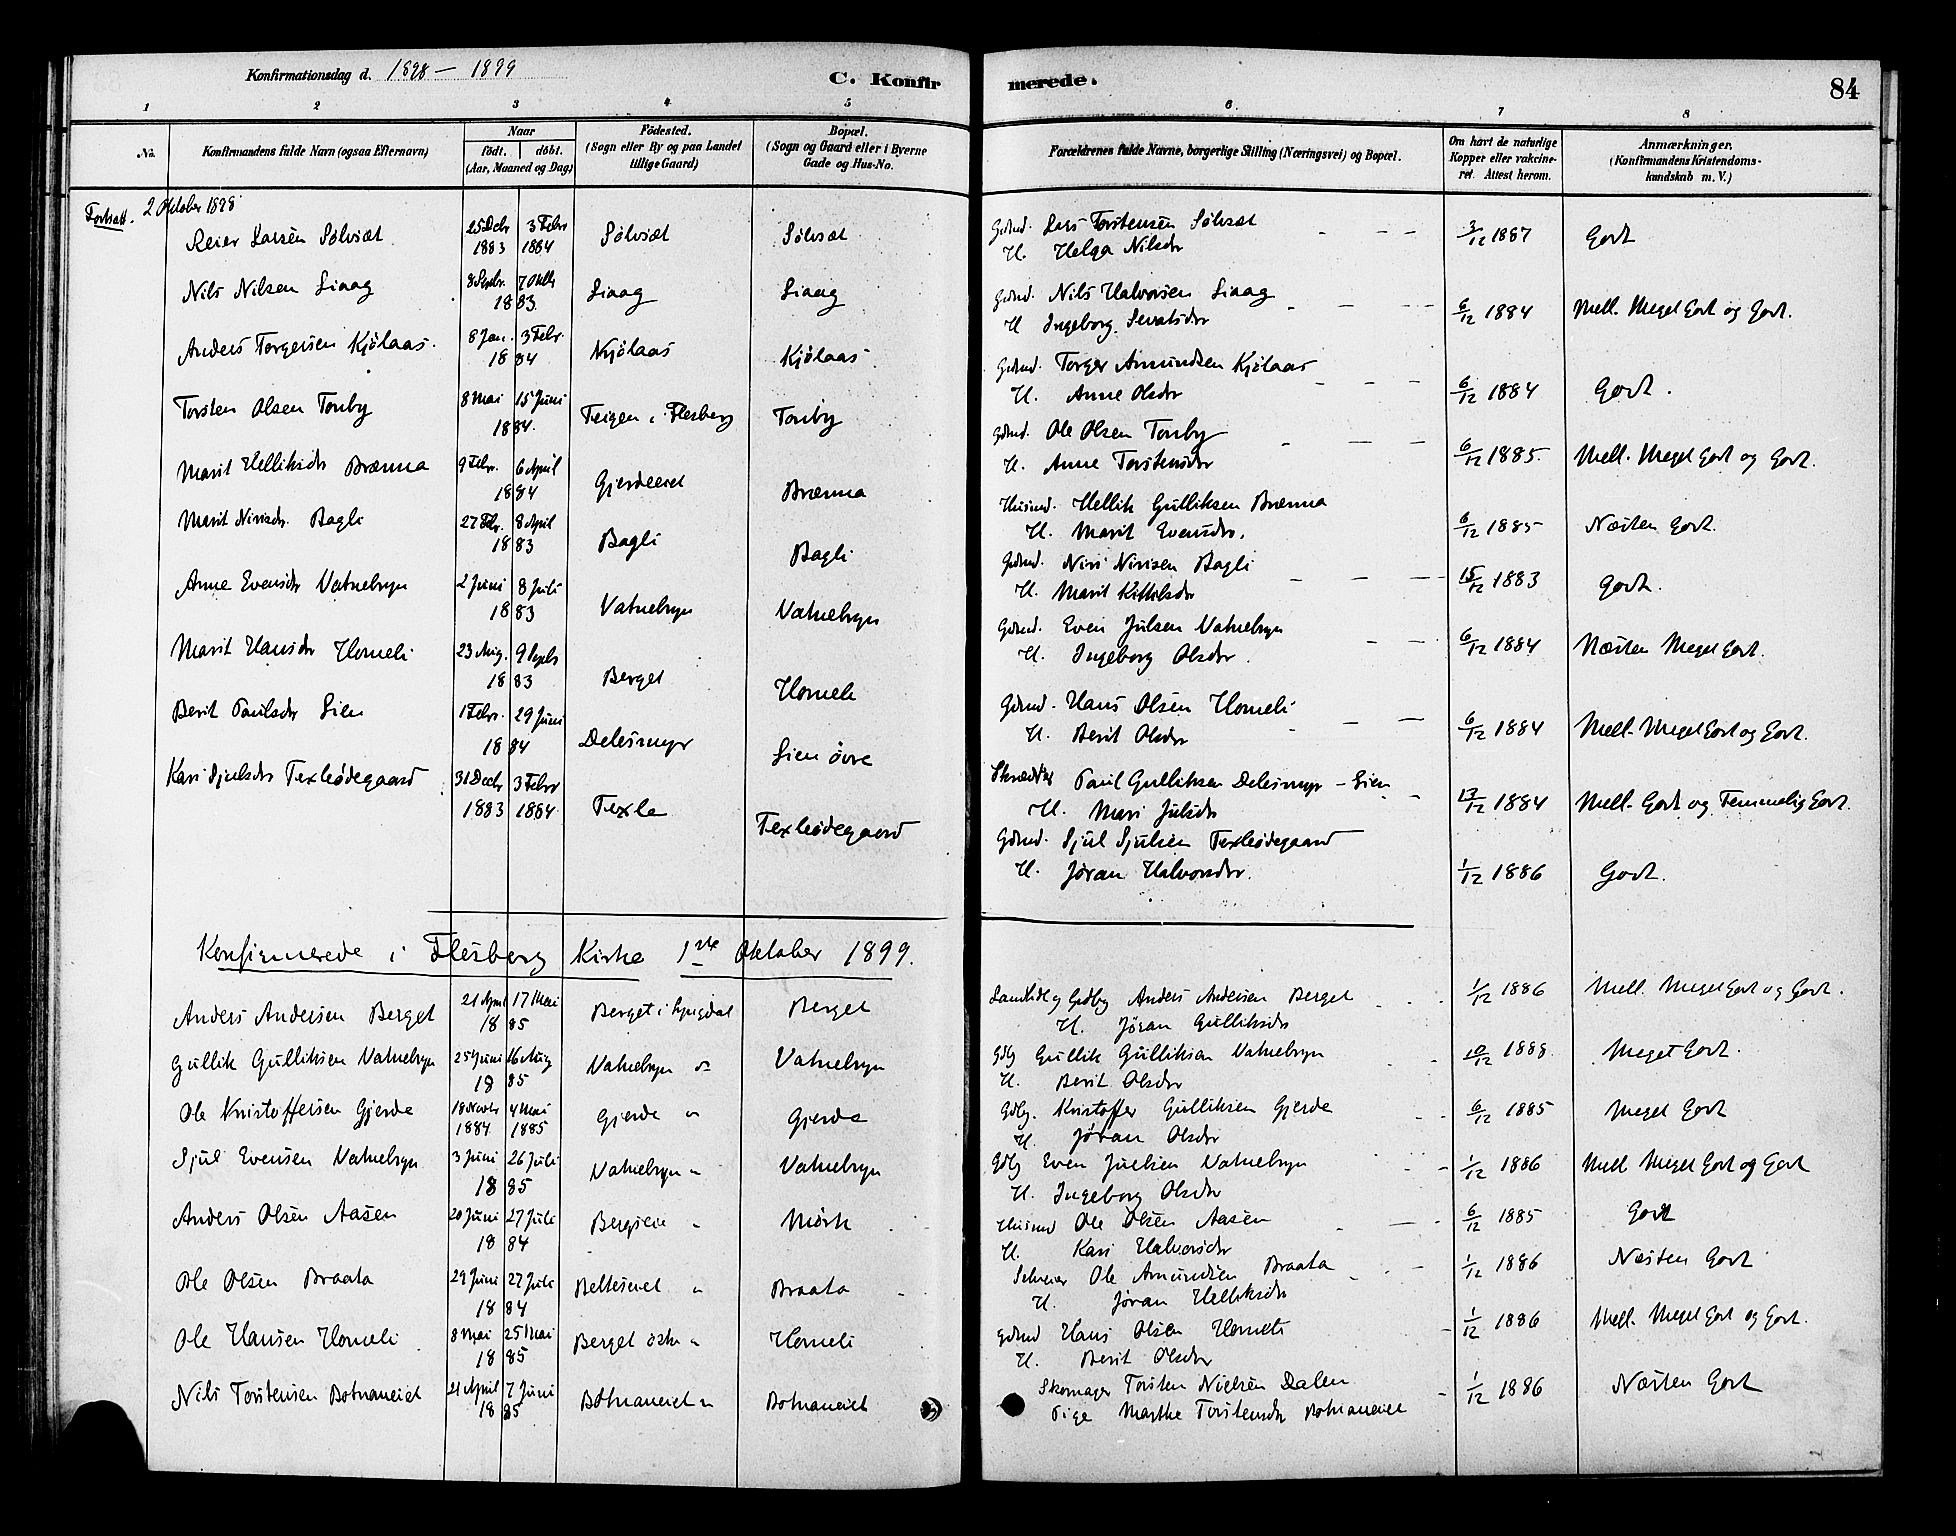 Konfirmationsdag d. 1898 — 1899
C. Konfirmerede.
84
1 2 3 4 5 6 7 8
No.
Konfirmandens fulde Navn (ogsaa Efternavn)
Naar
födt. döbt.
(Aar, Maaned og Dag)
Födested.
(Sogn eller By og paa Landet
tillige Gaard)
Bopæl.
(Sogn og Gaard eller i Byerne
Gade og Hus-No.
Forældrenes fulde Navne, borgerlige Stilling (Næringsvei) og Bopæl.
Om havt de naturlige
Kopper eller vakcine-
ret. Attest herom.
Anmærkninger.
(Konfirmandens Kristendoms-
kundskab m. V.)
Fortsatt. 2 Oktober 1898
Reier Larsen Sölvsæt 25 Decbr 1883 3 Febr 1884 Sölvsæt Sölvsæt Gdmd. Lars Torstensen Sölvsæt
H. Helga Nilsdr 3/12 1887 Godt
Nils Nilsen Liaag 8 Septbr. 7 Oktbr 1883. Liaag Liaag Gdmd. Nils Halvorsen Liaag
H Ingeborg Sevatsdr 6/12 1884 Mell. Meget Godt og Godt.
Anders Torgersen Kjölaas. 8 Jan. 3 Febr. 1884 Kjölaas Kjölaas Gdmd. Torger Amundsen Kjölaas
H. Anne Olsdr 6/12 1884 Godt.
Torsten Olsen Tonby 8 Mai 15 Juni 1884. Teigen i Flesberg Tonby Gdmd. Ole Olsen Tonby
H. Anne Torstensdr 6/12 1885. Mell. Meget Godt og Godt.
Marit Helliksdr Brænna 9 Febr. 6 April 1884 Gjerdeeiet Brænna Husmd. Hellik Gulliksen Brænna
H. Marit Evensdr. 6/12 1885 Næsten Godt.
Marit Nirisdr. Bagli 27 Febr. 8 April 1883 Bagli Bagli Gdmd. Niri Nirisen Bagli
H. Marit Kittilsdr 15/12 1883 Godt.
Anne Evensdr Vatnebryn 2 Juni 8 Juli 1883 Vatnebryn Vatnebryn Gdmd. Even Julsen Vatnebryn
H. Ingeborg Olsdr. 6/12 1884 Næsten Meget Godt.
Marit Hansdr Homeli 23 Aug. 9 Septb 1883 Berget Homeli Gdmd. Hans Olsen Homeli
H. Berit Olsdr 6/12 1884 Mell. Meget Godt og Godt.
Berit Paulsdr Lien 1 Febr. 29 Juni 1884 Delesmyr Lien övre Skrædder Paul Gulliksen Delesmyr – Lien
H. Mari Julsdr 13/12 1884 Mell. Godt og Temmelig Godt.
Kari Sjulsdr Texleödegaard 31 Decbr 1883 3 Febr 1884 Texle Texleödegaard Gdmd. Sjul Sjulsen Texleödegaard
H. Jöran Halvorsdr. 1/12 1886 Godt.
Konfirmerede i Flesberg Kirke 1ste Oktober 1899.
Anders Andersen Berget 21 April 17 Mai 1885 Berget i Lyngdal Berget Gdbg Anders Andersen Berget
H. Jöran Gulliksdr 1/12 1886 Mell. Meget Godt og Godt.
Gullik Gulliksen Vatnebryn 25 Juni 16 Aug 1885 Vatnebryn do Vatnebryn Gdbg Gullik Gulliksen Vatnebryn
H. Berit Olsdr 10/12 1888. Meget Godt.
Ole Kristoffersen Gjerde 18 Novbr 1884 4 Mai 1885 Gjerde " Gjerde Gdbg. Kristoffer Gulliksen Gjerde
H. Jöran Olsdr 6/12 1885 Meget Godt
Sjul Evensen Vatnebryn 3 Juni 26 Juli 1885 Vatnebryn " Vatnebryn Gdbg Even Juelsen Vatnebryn
H. Ingeborg Olsdr 1/12 1886 Mell Meget Godt og Godt
Anders Olsen Aasen 20 Juni 27 Juli 1884 Bergseie " Mörk Husmd Ole Olsen Aasen
H. Kari Halvorsdr 6/12 1885 Godt
Ole Olsen Braata 29 Juni 27 Juli 1884 " Braata Selveier Ole Amundsen Braata
H. Jöran Helliksdr 1/12 1886 Næsten Godt
Ole Hansen Homeli 8 Mai 25 Mai 1885 Berget östre " Homeli Gdmd Hans Olsen Homeli
H. Berit Olsdr 1/12 1886 Mell. Meget Godt og Godt.
Nils Torstensen Botnaneiet 21 April 7 Juni 1885 Botnaneiet " Botnaneiet Skomager Torsten Nielsen Dalen
Pige Marthe Torstensdr Botnaneiet 1/12 1886 Næsten Godt